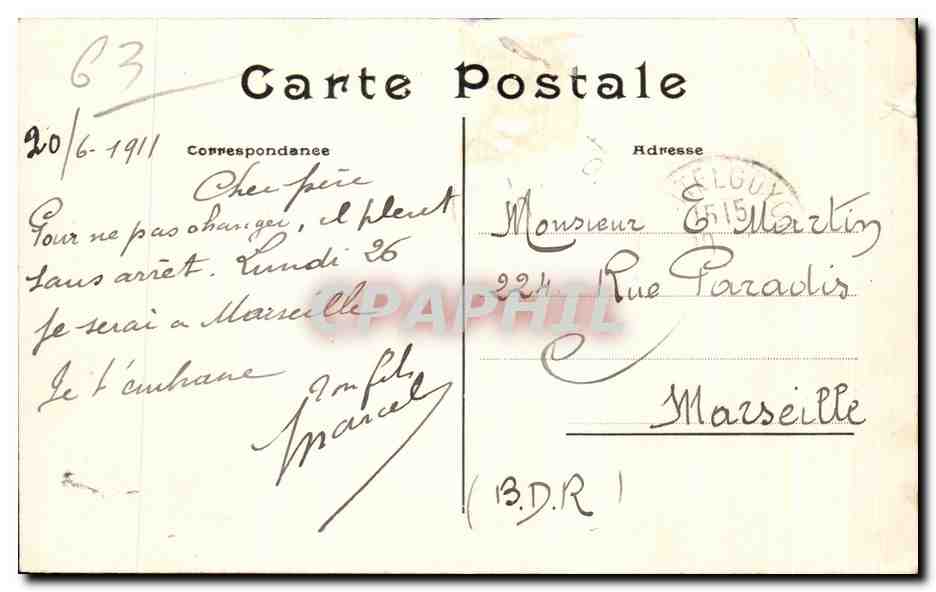 63
Carte Postale
20/6-1911
Correspondance
Cher père
Pour ne pas changer, il pleut
sans arrêt. Lundi 26
Je serai a Marseille
Je t'embrasse
Ton fils
Marcel
Adresse
TELGUY
15 15
Monsieur E Martin
224 Rue Paradis
Marseille
(B.D.R)
CPAPHIL